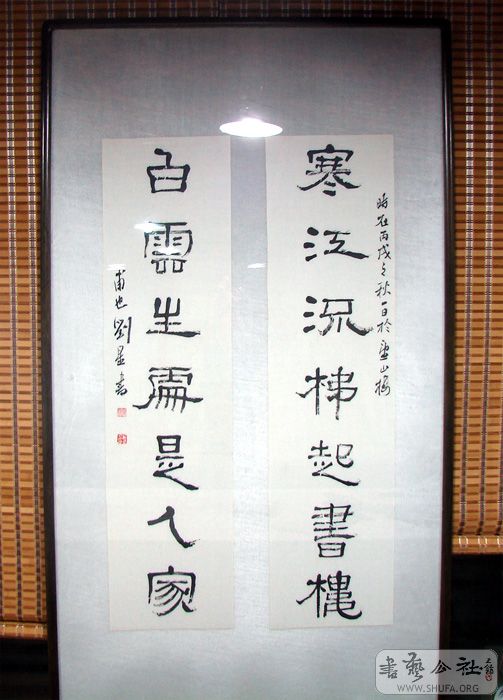 時在丙戌之秋一日於山樓
寒江況梯起書樓
白雲生處是人家
甫也劉星書
書藝公社
WWW.SHUFA.ORG